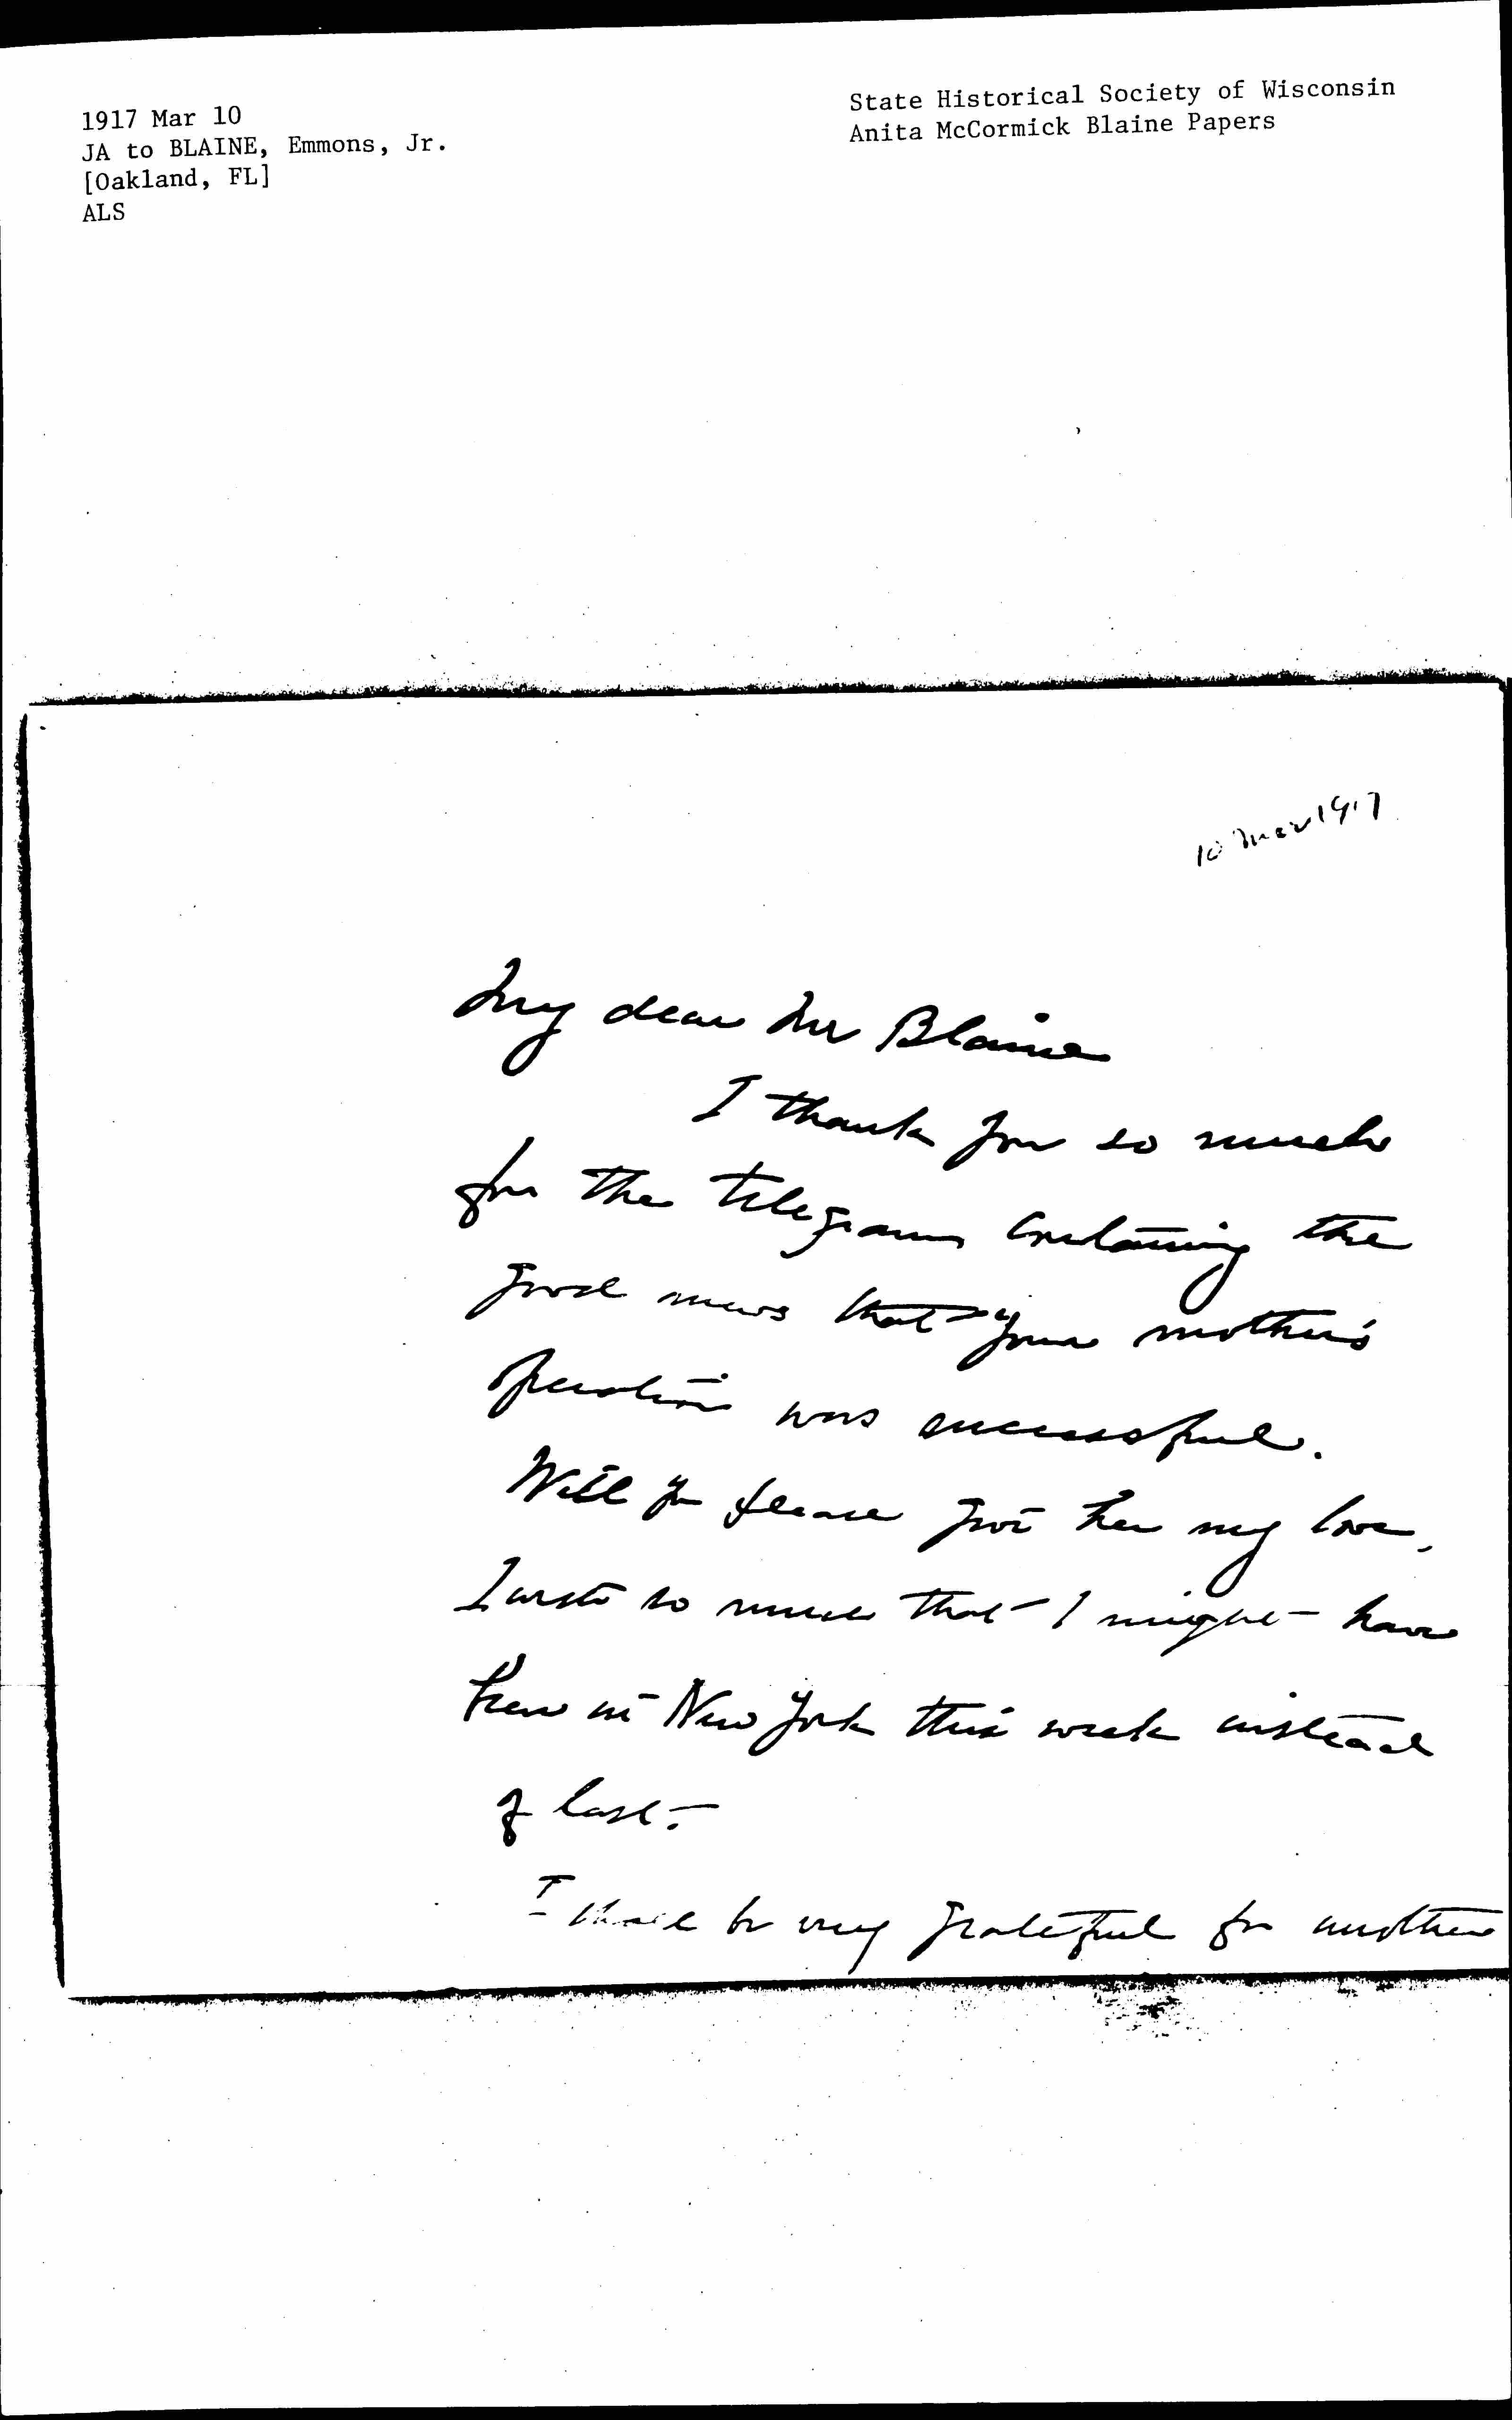 1917 Mar 10
JA to BLAINE, Emmons, Jr.
[Oakland, FL]
ALS
State Historical Society of Wisconsin
Anita McCormick Blaine Papers
10 Mar 1917
My dear Mr Blaine
I thank you so much
for the telegram containing the
good news that your mother's
operation was successful.
Will you please give her my love,
I wish so much that I might have
been in New York this week instead
of last.
I shall be very grateful for another